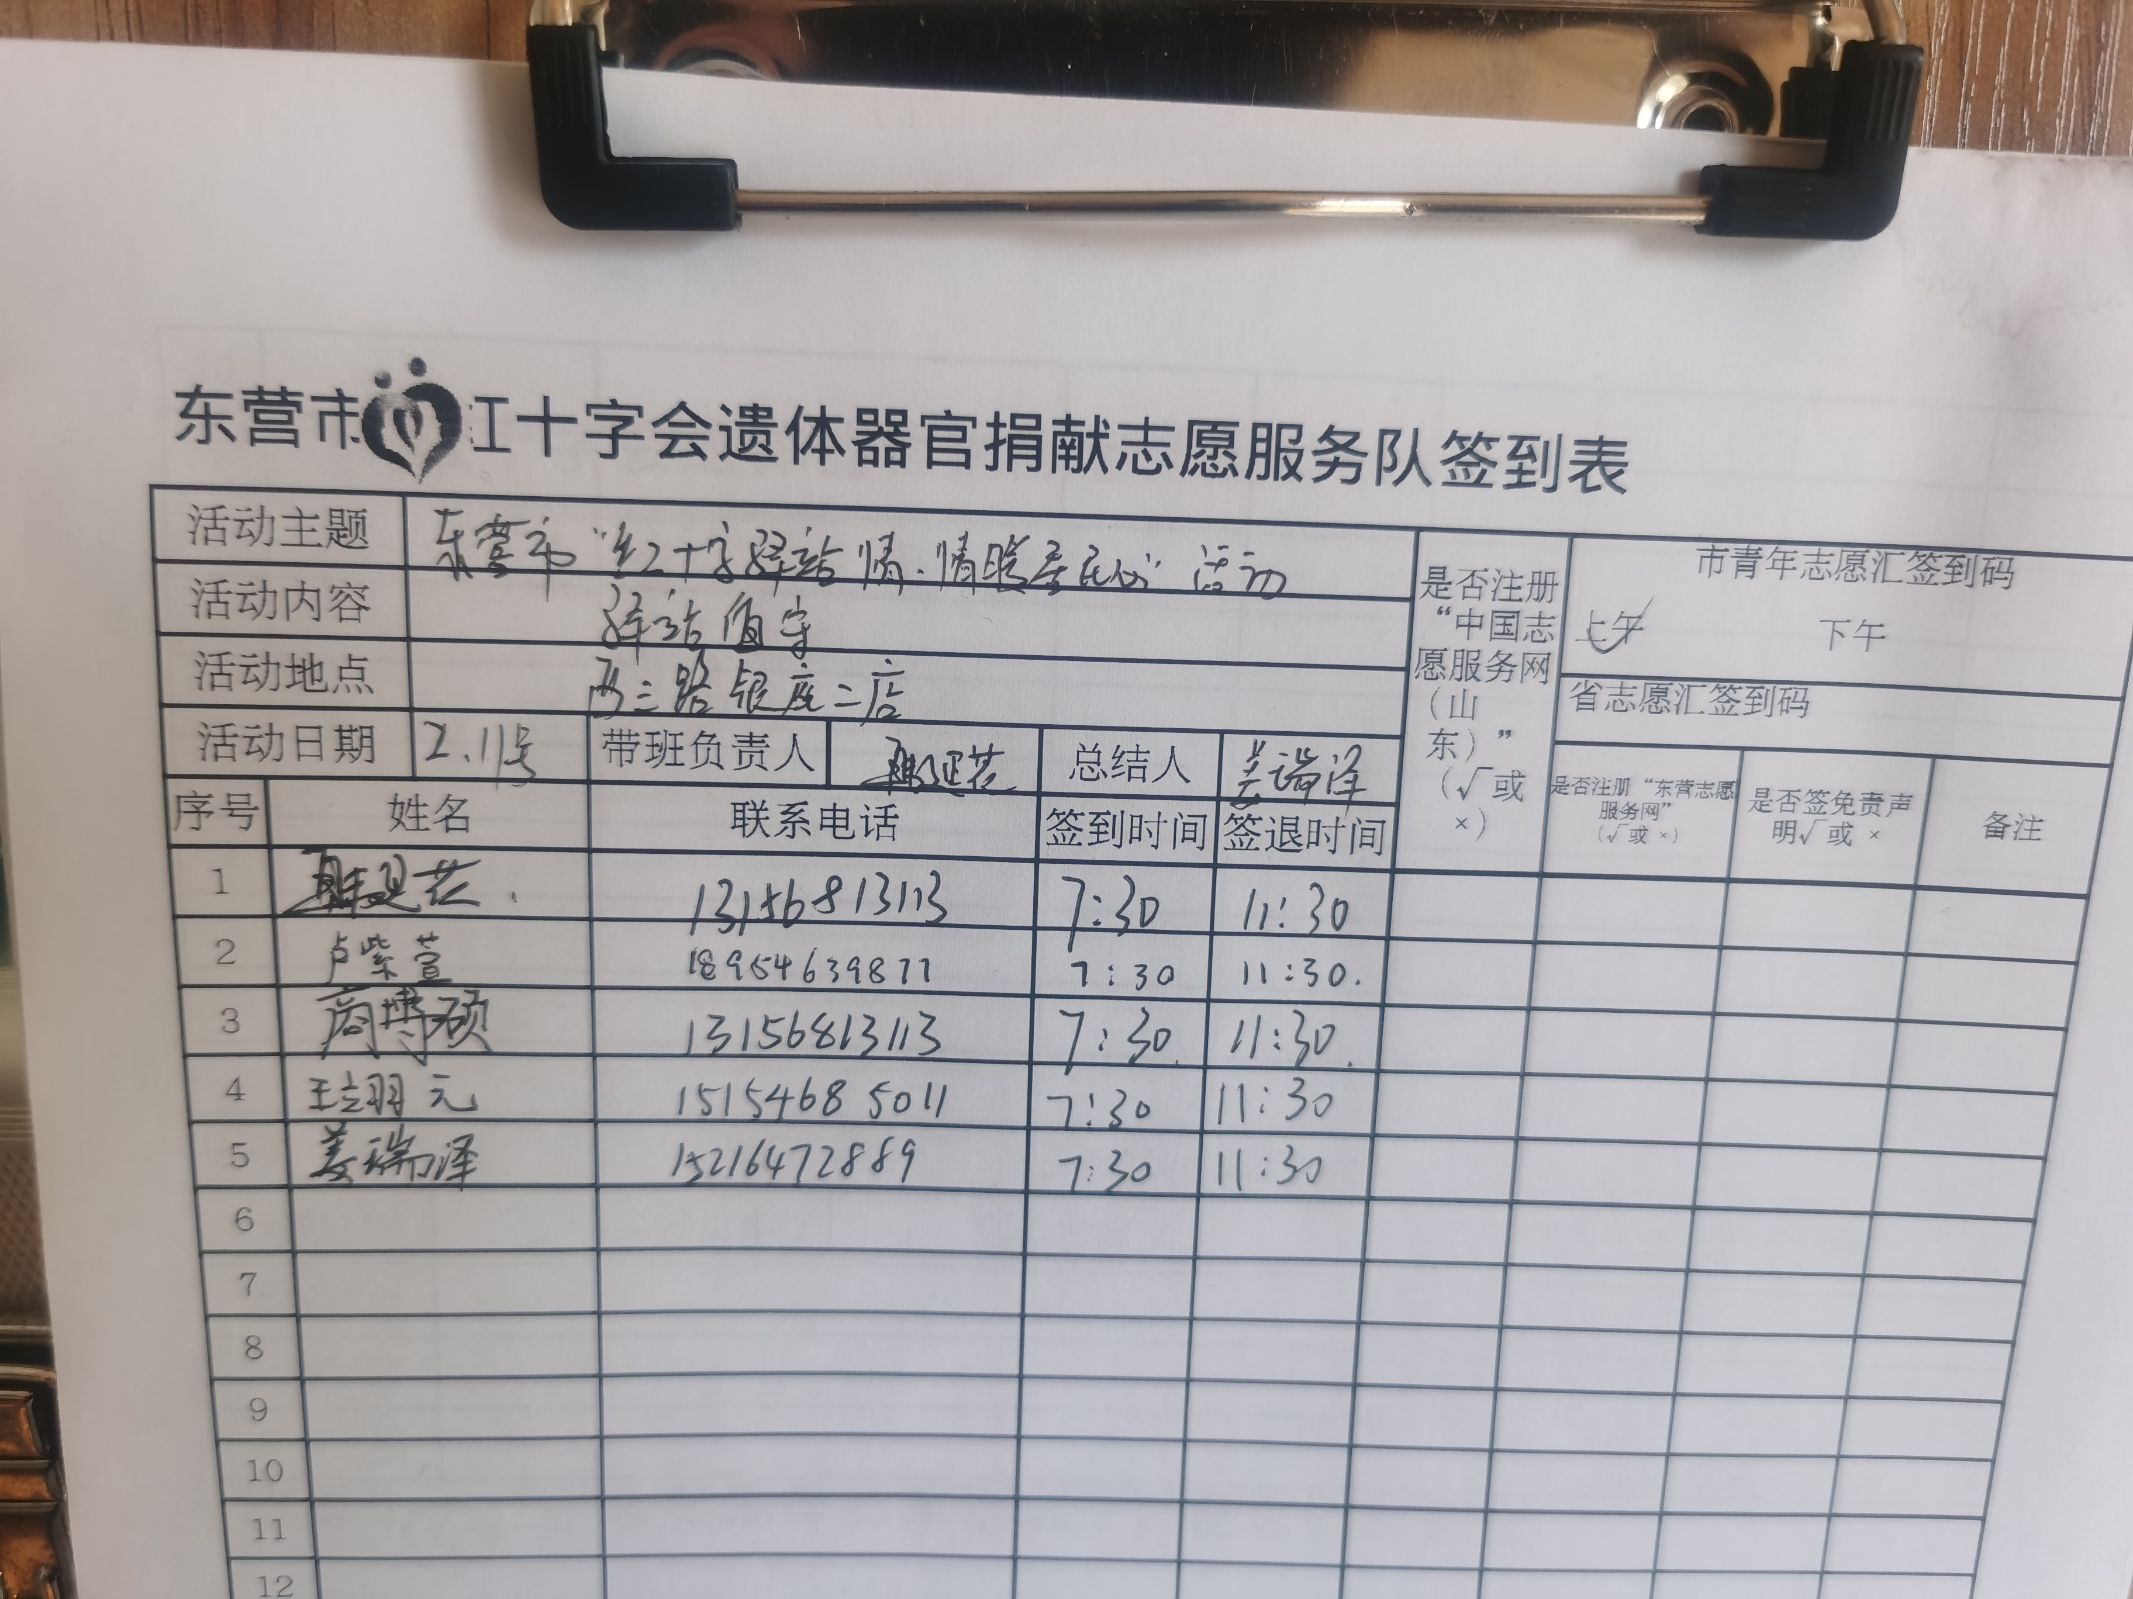 东营市红十字会遗体器官捐献志愿服务队签到表
活动主题 东营市“红十字驿站情·情暖居民心”活动
活动内容 驿站值守
活动地点 西三路银座二店
活动日期 2.11号 带班负责人 总结人 姜瑞泽
是否注册“中国志愿服务网(山东)”(√或×)
市青年志愿汇签到码
上午 下午
省志愿汇签到码
序号 姓名 联系电话 签到时间 签退时间 是否注册“东营志愿服务网”(√或×) 是否签免责声明√或× 备注
1 13156813113 7:30 11:30
2 卢紫萱 18954639877 7:30 11:30.
3 商博硕 13156813113 7:30. 11:30.
4 王翊元 15154685011 7:30 11:30
5 姜瑞泽 15216472889 7:30 11:30
6
7
8
9
10
11
12